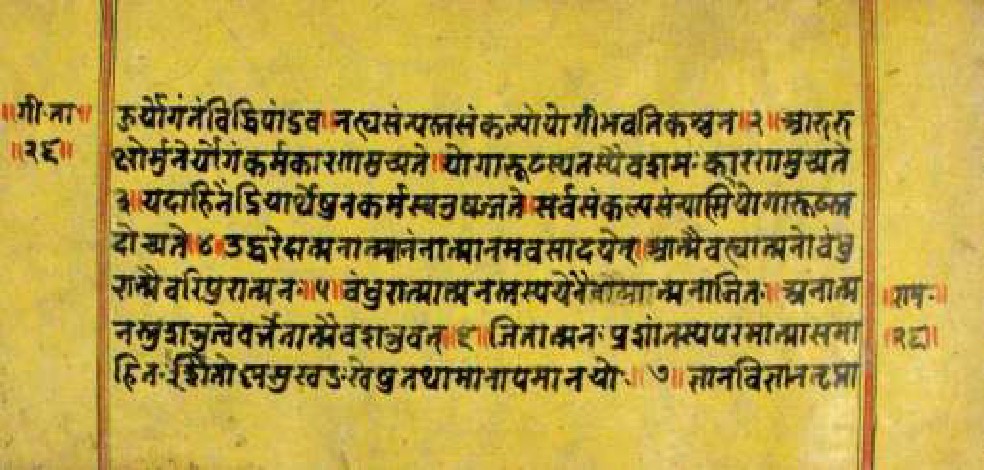 ॥गी॰ता॥
॥२६॥
हुर्योगंतंविद्धिपांडव॥नत्यसंन्यस्तसंकल्पोयोगीभवतिकश्चन॥२॥आरुरु
क्षोर्मुनेर्योगंकर्मकारणमुच्यते॥योगारूढस्यतस्यैवशमःकारणमुच्यते
३॥यदाहिनेंद्रियार्थेषुनकर्मस्वनुषज्जते॥सर्वसंकल्पसंन्यासियोगारूढस्त
दोच्यते॥४॥उद्धरेदात्मनात्मानंनात्मानमवसादयेत्॥आत्मैवह्यात्मनोबंधु
रात्मैवरिपुरात्मनः॥५॥बंधुरात्मात्मनस्तस्ययेनैवात्मात्मनाजितः॥अनात्म
नस्तुशत्रुत्वेवर्त्तेतात्मैवशत्रुवत्॥६॥जितात्मनःप्रशांतस्यपरमात्मासमा
हितःशीतोष्णसुखदुःखेषुतथामानापमानयोः॥७॥ज्ञानविज्ञानतृप्ता
॥रामः॥
॥२६॥